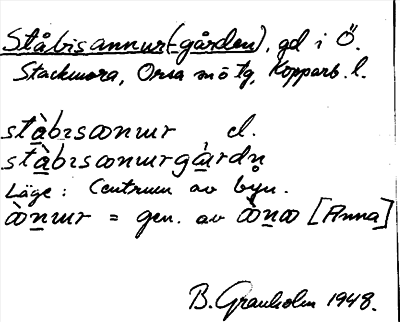 Ståbisannur(-gården), gd i Ö.
Stackmora, Orsa sn o tg, Kopparb. l.
stàbɪsannɯr el.
stàbɪsanɯrgàrdn̥
Läge: Centrum av byn.
ànɯr = gen. av àna [Anna]
B. Granholm 1948.